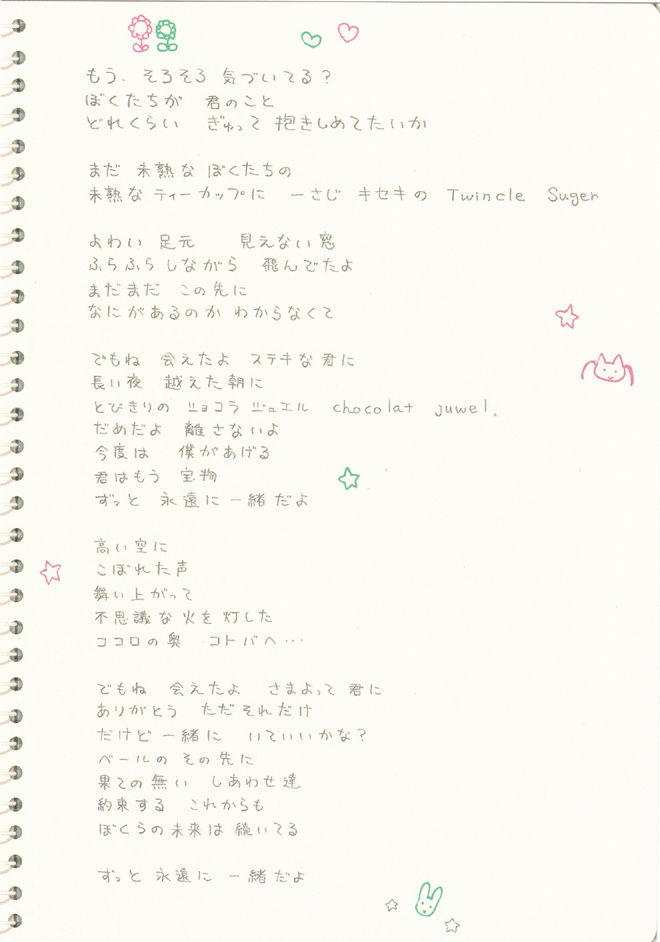 もう、そろそろ 気づいてる？
ぼくたちが 君のこと
どれくらい ぎゅって 抱きしめてたいか
まだ 未熟な ぼくたちの
未熟な ティーカップに 一さじ キセキの Twincle Suger
よわい 足元 見えない窓
ふらふら しながら 飛んでたよ
まだまだ この先に
なにがあるのか わからなくて
でもね 会えたよ ステキな君に
長い夜 越えた朝に
とびきりの ショコラ ジュエル chocolat juwel.
だめだよ 離さないよ
今度は 僕があげる
君はもう 宝物
ずっと 永遠に 一緒だよ
高い空に
こぼれた声
舞い上がって
不思議な火を灯した
ココロの奥 コトバへ…
でもね 会えたよ さまよって 君に
ありがとう ただそれだけ
だけど一緒に いていいかな？
ベールの その先に
果ての無い しあわせ達
約束する これからも
ぼくらの未来は 続いてる
ずっと 永遠に 一緒だよ